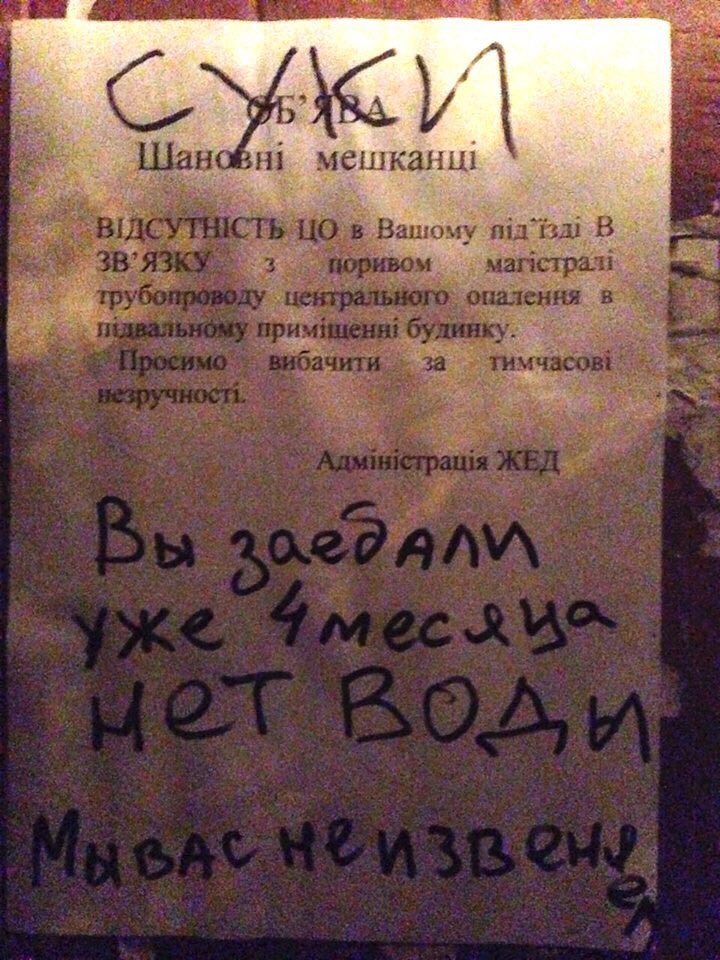 СУКИ
ОБ’ЯВА
Шановні мешканці
ВІДСУТНІСТЬ ЦО в Вашому під’їзді В
ЗВ’ЯЗКУ з поривом магістралі
трубопроводу центрального опалення в
підвальному приміщенні будинку.
Просимо вибачити за тимчасові
незручності.
Адміністрація ЖЕД
Вы заебали
уже 4 месяца
нет ВОДЫ
Мы вас не извеня
ем